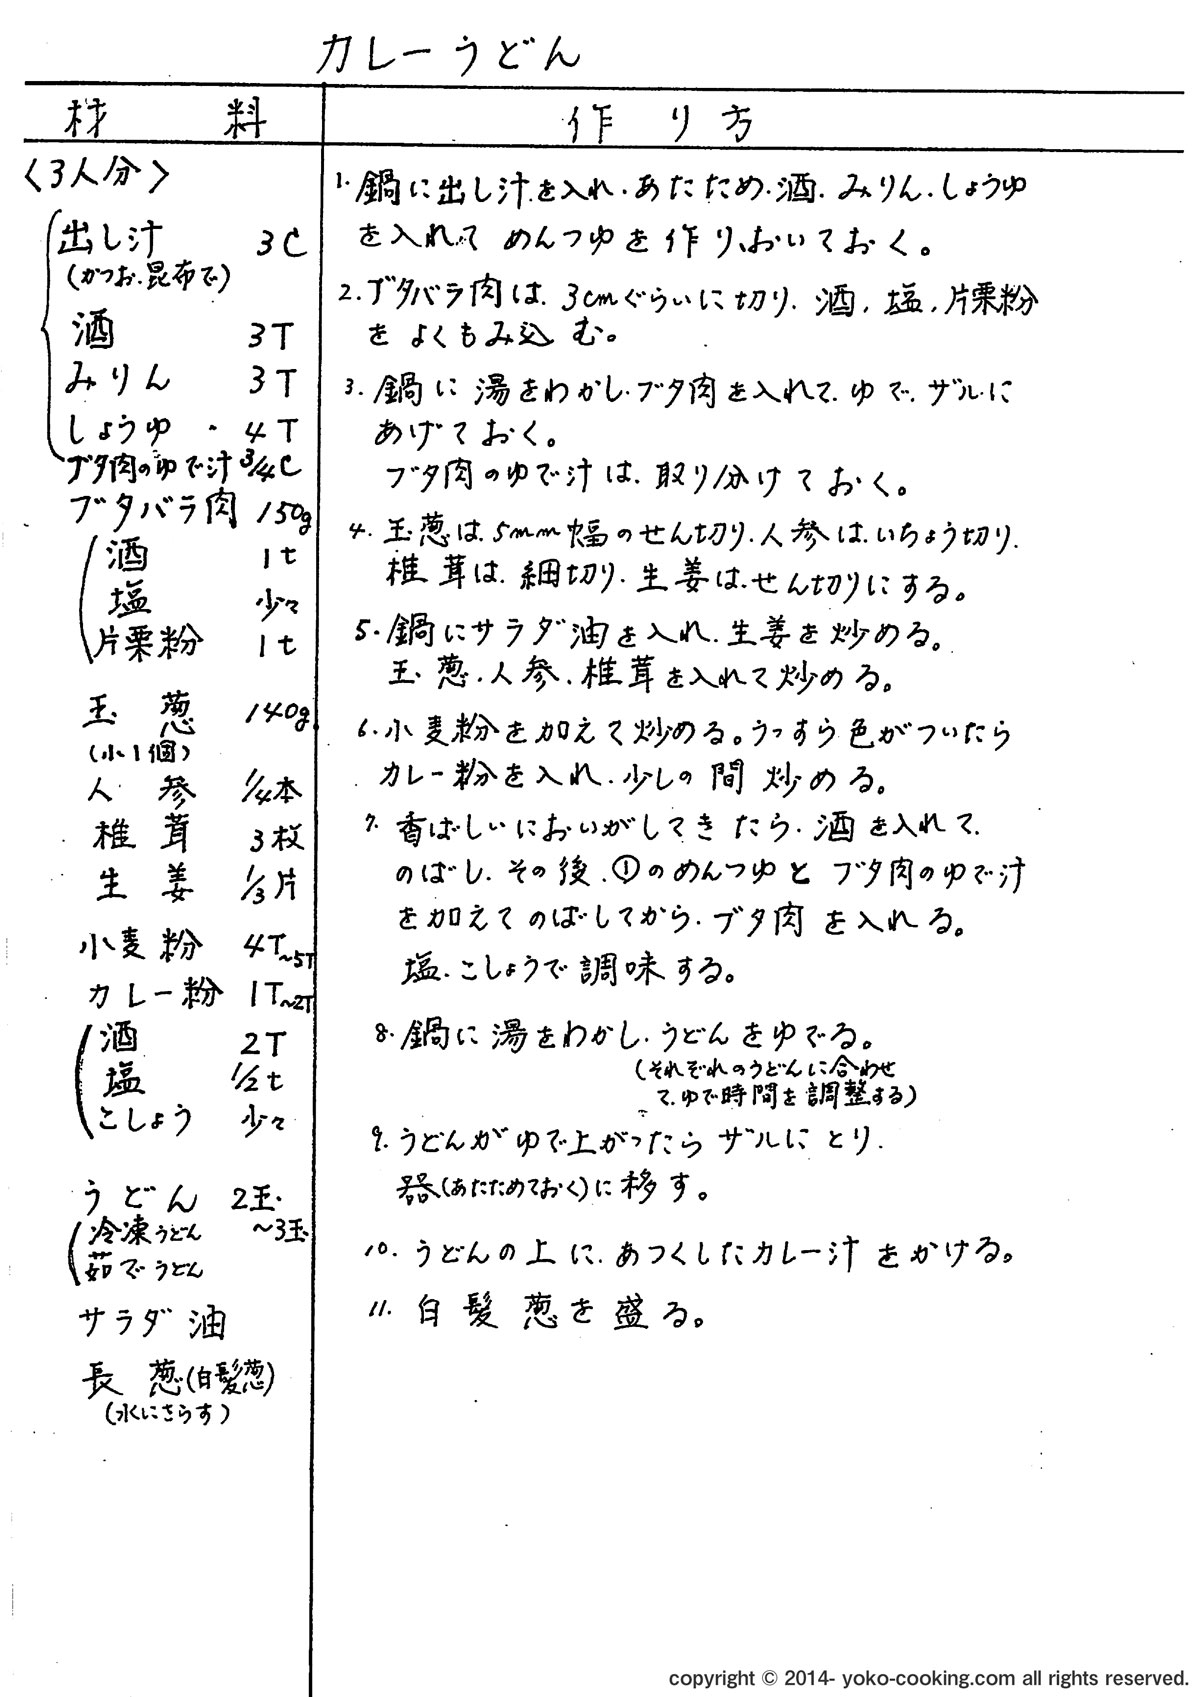 カレーうどん
材料
作り方
〈3人分〉
出し汁 3C
(かつお、昆布で)
酒 3T
みりん 3T
しょうゆ 4T
ブタ肉のゆで汁 3/4C
ブタバラ肉 150g
酒 1t
塩 少々
片栗粉 1t
玉葱 140g
(小1個)
人参 1/4本
椎茸 3枚
生姜 1/3片
小麦粉 4T~5T
カレー粉 1T~2T
酒 2T
塩 1/2t
こしょう 少々
うどん 2玉
~3玉
冷凍うどん
茹でうどん
サラダ油
長葱(白髪葱)
(水にさらす)
1. 鍋に出し汁を入れ、あたため、酒、みりん、しょうゆ
を入れて めんつゆを作り、おいておく。
2. ブタバラ肉は、3cmぐらいに切り、酒、塩、片栗粉
をよくもみ込む。
3. 鍋に湯をわかし、ブタ肉を入れて、ゆで、ザルに
あげておく。
ブタ肉のゆで汁は、取り分けておく。
4. 玉葱は、5mm幅のせん切り、人参は、いちょう切り、
椎茸は、細切り、生姜は、せん切りにする。
5. 鍋にサラダ油を入れ、生姜を炒める。
玉葱、人参、椎茸を入れて炒める。
6. 小麦粉を加えて炒める。うっすら色がついたら
カレー粉を入れ、少しの間炒める。
7. 香ばしいにおいがしてきたら、酒を入れて、
のばし、その後、①のめんつゆとブタ肉のゆで汁
を加えてのばしてから、ブタ肉を入れる。
塩、こしょうで調味する。
8. 鍋に湯をわかし、うどんをゆでる。
(それぞれのうどんに合わせ
て、ゆで時間を調整する)
9. うどんがゆで上がったらザルにとり、
器(あたためておく)に移す。
10. うどんの上に、あつくしたカレー汁をかける。
11. 白髪葱を盛る。
copyright © 2014- yoko-cooking.com all rights reserved.